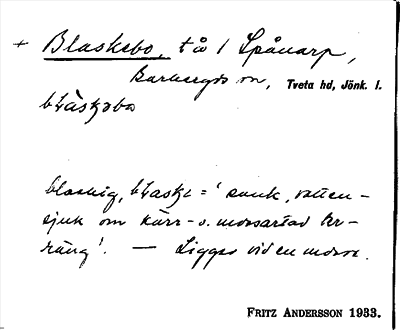 + Blaskebo, tå 1 Spånarp,
Barkeryds sn, Tveta hd, Jönk. l.
blaskig, = 'sank, vatten-
sjuk om kärr- o. mossartad ter-
räng'. — Ligger vid en mosse.
FRITZ ANDERSSON 1933.